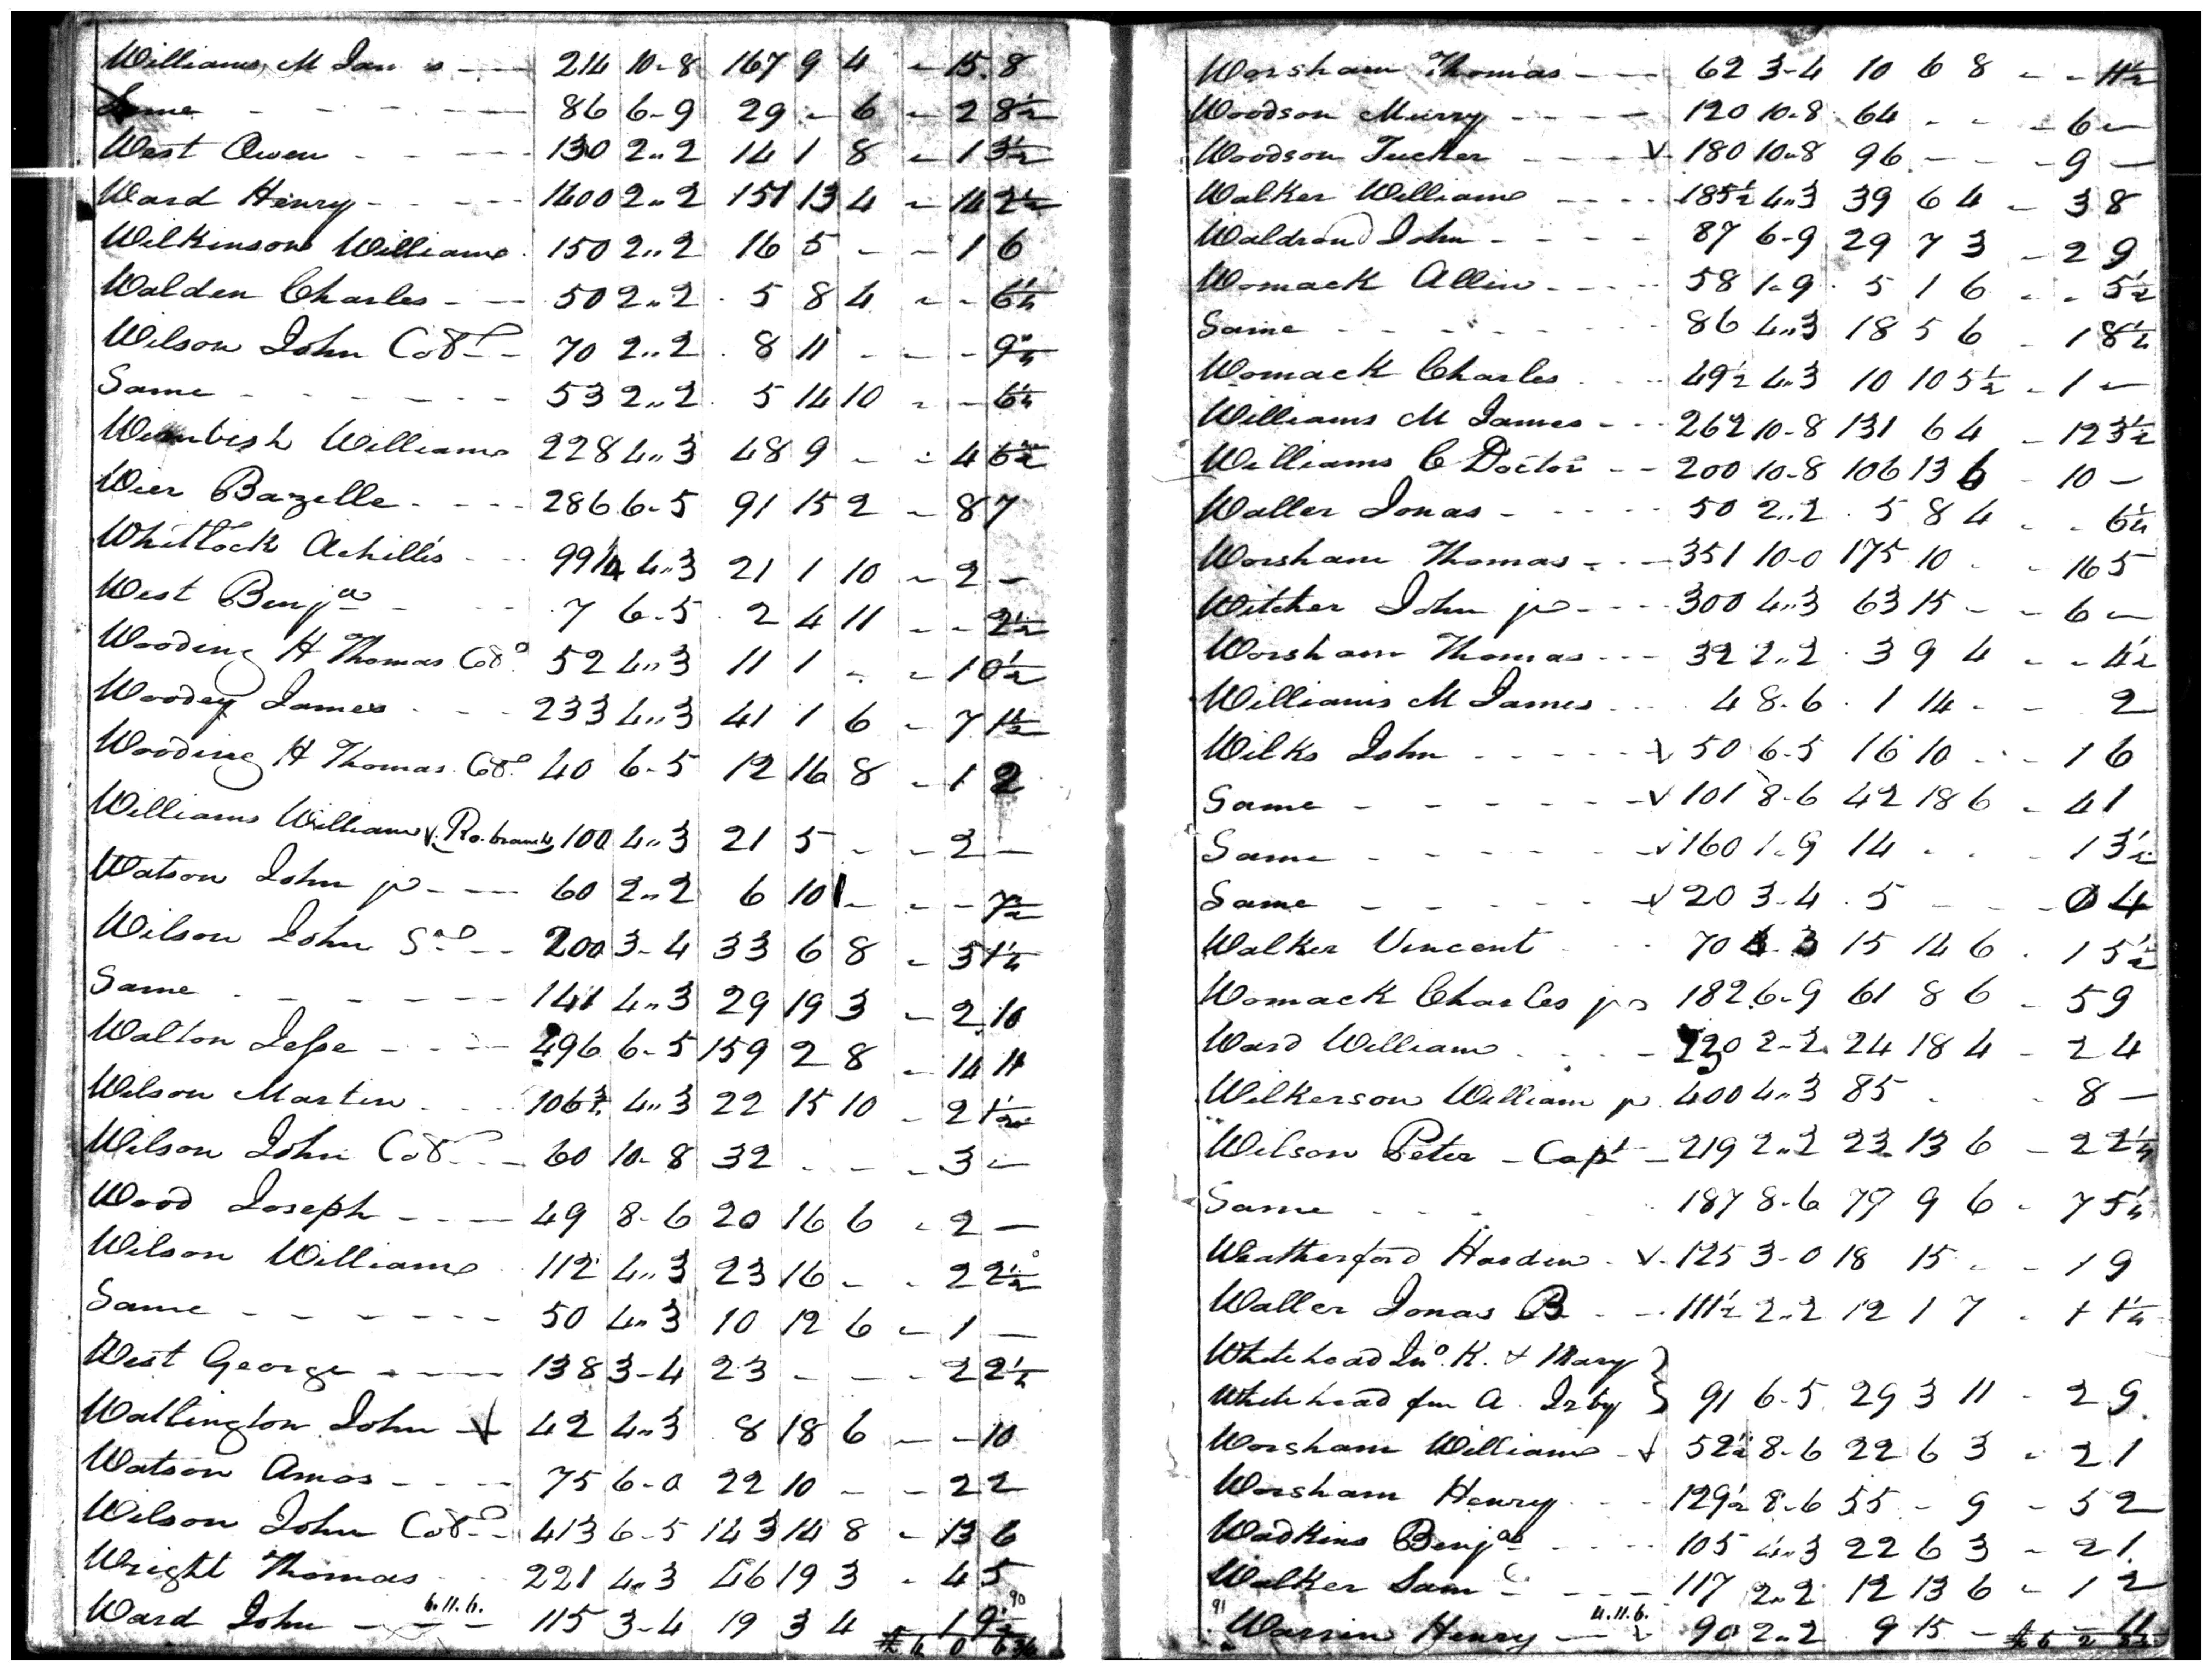 Williams M Jam s - - - 214 10-8 167 9 4 - 15. 8
Same - - - - - - 86 6-9 29 - 6 - 2 8½
West Owen - - - - 130 2"2 14 1 8 - 1 3½
Ward Henry - - - - 1400 2"2 151 13 4 - 14 2½
Wilkinson William 150 2"2 16 5 - - 1 6
Walden Charles - - - 50 2"2 5 8 4 - - 6¼
Wilson John Col - - 70 2"2 8 11 - - - 9
Same - - - - - - 53 2"2 5 14 10 - - 6¼
Wimbish William 228 4"3 48 9 - - 4 6½
Wier Bazelle - - - - 286 6-5 91 15 2 - 8 7
Whitlock Achillis - - 99¼ 4"3 21 1 10 - 2 -
West Benja - - - 7 6-5 2 4 11 - - 2½
Wooding H Thomas Col 52 4"3 11 1 - - 1 0½
Woodey James - - - 233 4"3 41 1 6 - 7 1½
Wooding H Thomas Col 40 6-5 12 16 8 - 1 2
Williams William v. Ro. branch 100 4"3 21 5 - - 2 -
Watson John jr - - - 60 2"2 6 10 - - - 7½
Wilson John Sr - - 200 3-4 33 6 8 - 3 1¼
Same - - - - - - 141 4"3 29 19 3 - 2 10
Walton Jesse - - - - 496 6-5 159 2 8 - 14 11
Wilson Martin - - - 106¾ 4"3 22 15 10 - 2 1½
Wilson John Col - - 60 10-8 32 - - - 3 -
Wood Joseph - - - - 49 8-6 20 16 6 - 2 -
Wilson William 112 4"3 23 16 - - 2 2½
Same - - - - - - 50 4"3 10 12 6 - 1 -
West George - - - - 138 3-4 23 - - - 2 2½
Wallington John v 42 4"3 8 18 6 - - 10
Watson Amos - - - - 75 6-0 22 10 - - 2 2
Wilson John Col - - 413 6-5 143 14 8 - 13 6
Wright Thomas - - 221 4"3 46 19 3 - 4 5
Ward John - - - 6.11.6. 115 3-4 19 3 4 1 9½ 90
Worsham Thomas - - - 62 3-4 10 6 8 - - 11½
Woodson Murry - - - - 120 10-8 64 - - - 6 -
Woodson Tucker - - - v 180 10-8 96 - - - 9 -
Walker William - - - - 185½ 4"3 39 6 4 - 3 8
Waldron John - - - - 87 6-9 29 7 3 - 2 9
Womack Allin - - - - 58 1-9 5 1 6 - - 5½
Same - - - - - - - 86 4"3 18 5 6 - 1 8½
Womack Charles - - - 49½ 4"3 10 10 5½ - 1 -
Williams M James - - 262 10-8 131 6 4 - 12 3½
Williams C Doctor - - 200 10-8 106 13 6 - 10 -
Waller Jonas - - - - - 50 2"2 5 8 4 - - 6¼
Worsham Thomas - - - 351 10-0 175 10 - - 16 5
Witcher John jr - - - 300 4"3 63 15 - - 6 -
Worsham Thomas - - - 32 2"2 3 9 4 - - 4½
Williams M James - - 4 8-6 1 14 - - 2
Wilks John - - - - - v 50 6-5 16 10 - - 1 6
Same - - - - - - v 101 8-6 42 18 6 - 4 1
Same - - - - - - v 160 1-9 14 - - - 1 3½
Same - - - - - - v 20 3-4 5 - - - 0 4
Walker Vincent - - 70 4-3 15 14 6 - 1 5½
Womack Charles jr 182 6-9 61 8 6 - 5 9
Ward William - - - - 230 2-2 24 18 4 - 2 4
Wilkerson William jr 400 4"3 85 - - - 8 -
Wilson Peter - Capt - 219 2"2 23 13 6 - 2 2¼
Same - - - - 187 8-6 79 9 6 - 7 5¼
Weatherford Harden - v - 125 3-0 18 15 - - 1 9
Waller Jonas B - - - 111½ 2"2 12 1 7 - 1 1¼
Whitehead Jno. K. & Mary }
Whitehead fm A. Irby } 91 6-5 29 3 11 - 2 9
Worsham William - v 52½ 8-6 22 6 3 - 2 1
Worsham Henry - - - 129½ 8-6 55 - 9 - 5 2
Wadkins Benja - - - - 105 4"3 22 6 3 - 2 1
Walker Sam - - - - 117 2"2 12 13 6 - 1 2
91 Warrin Henry - - 4.11.6. v 90 2"2 9 15 - 11